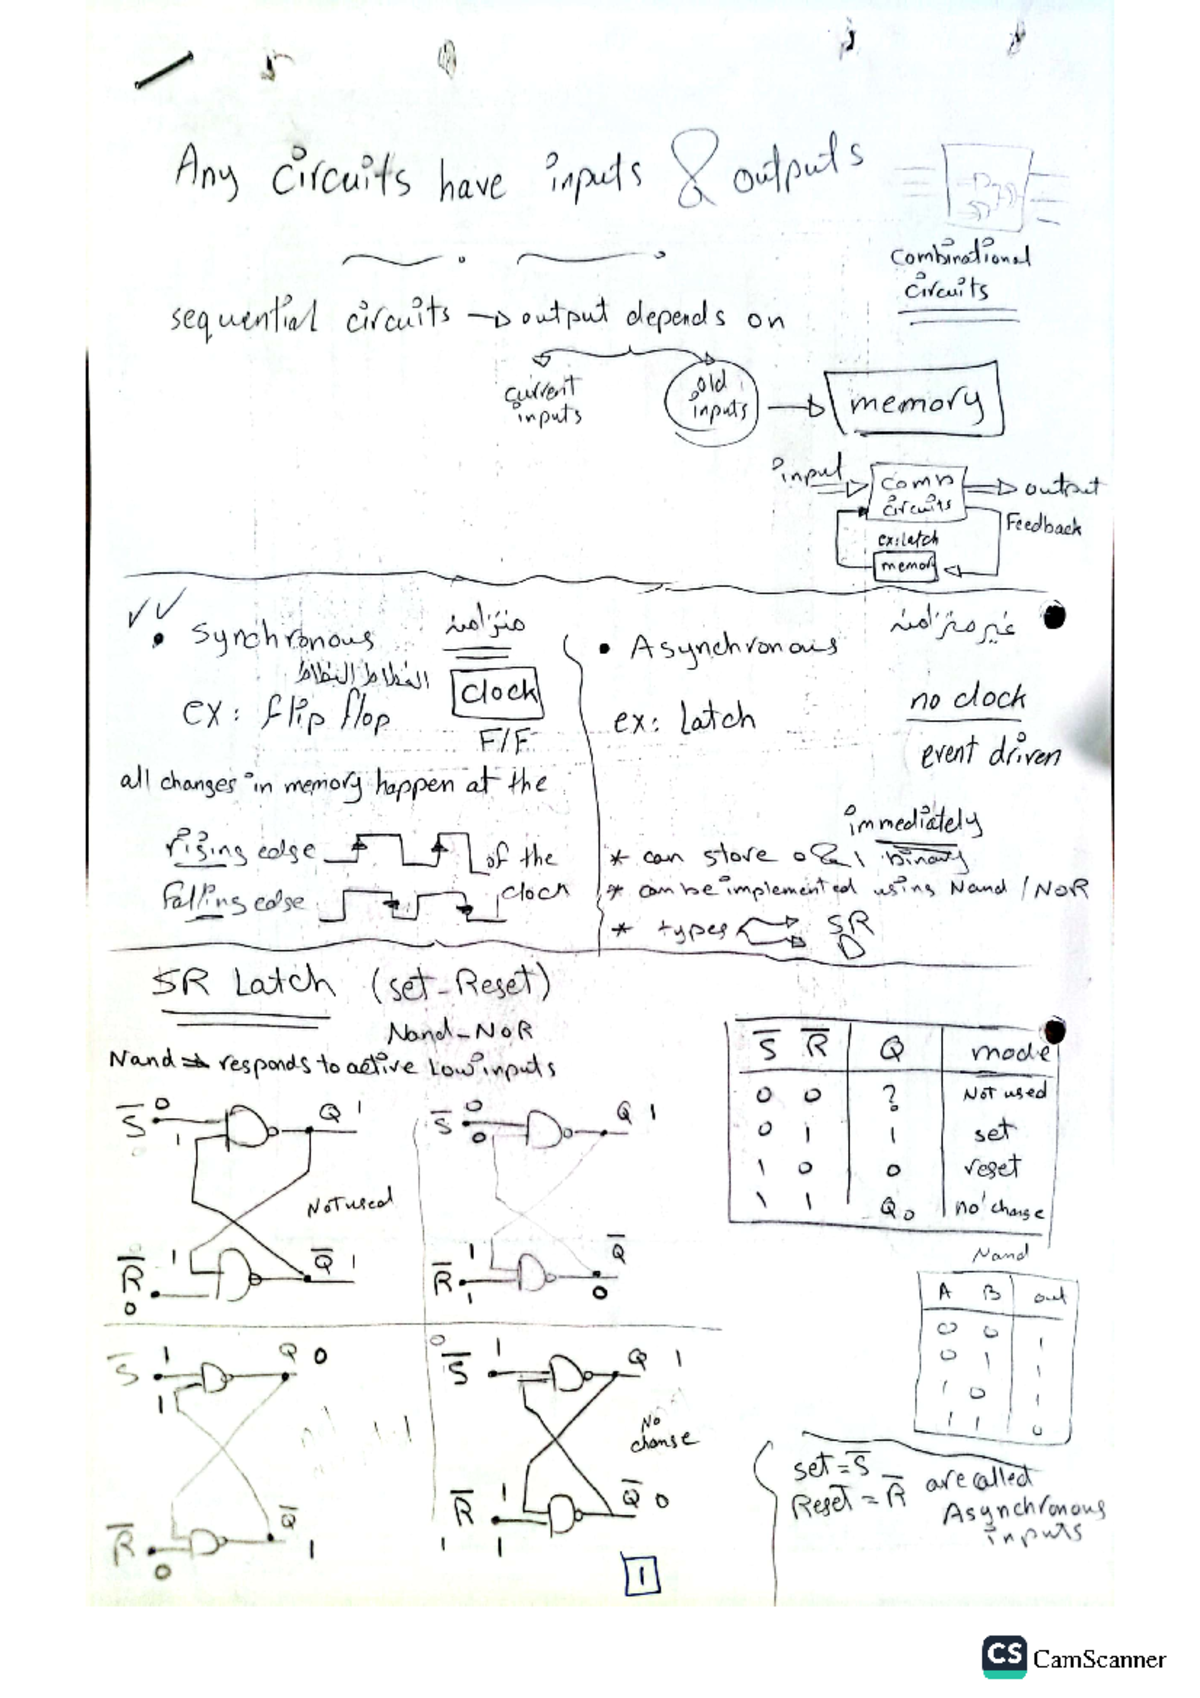 Any circuits have inputs & outputs
Combinational
circuits
sequential circuits → output depends on
current
inputs
old
inputs
memory
input
comb
circuits
output
Feedback
ex:latch
memory
• Synchronous
متزامنة
ex: flip flop
clock
F/F
all changes in memory happen at the
rising edge
of the
falling edge
clock
• Asynchronous
غير متزامنة
ex: Latch
no clock
event driven
immediately
* can store 0 & 1 binary
* can be implemented using Nand / NOR
* types
SR
D
SR Latch (set-Reset)
Nand-NOR
Nand → responds to active Low inputs
S̅ 0
1
Q 1
Not used
R̅
0
1
Q̅ 1
S̅ 0
0
Q 1
R̅ 1
1
Q̅
0
S̅ 1
1
Q 0
R̅
0
Q̅
1
0
S̅ 1
Q 1
No
change
R̅ 1
1 1
Q̅ 0
S̅ R̅ Q mode
0 0 ? Not used
0 1 1 set
1 0 0 reset
1 1 Q0 no change
Nand
A B out
0 0 1
0 1 1
1 0 1
1 1 0
set = S̅
Reset = R̅
are called
Asynchronous
inputs
1
CS CamScanner